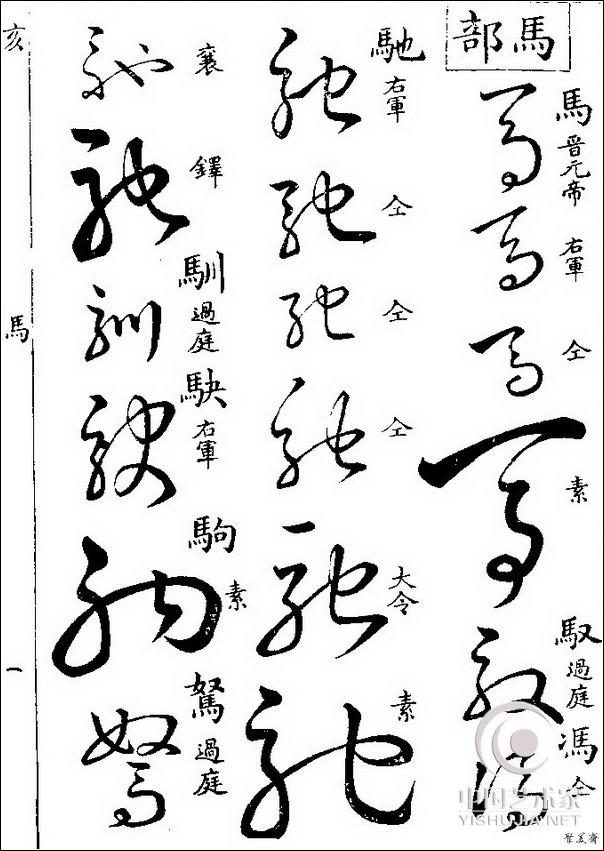 馬部
馬 晉元帝
右軍
仝
素
馭 過庭
馮 仝
馳 右軍
仝
仝
仝
大令
素
襄
鐸
馴 過庭
駃 右軍
駒 素
駑 過庭
亥
馬
一
中国艺术家
YISHUJIA.NET